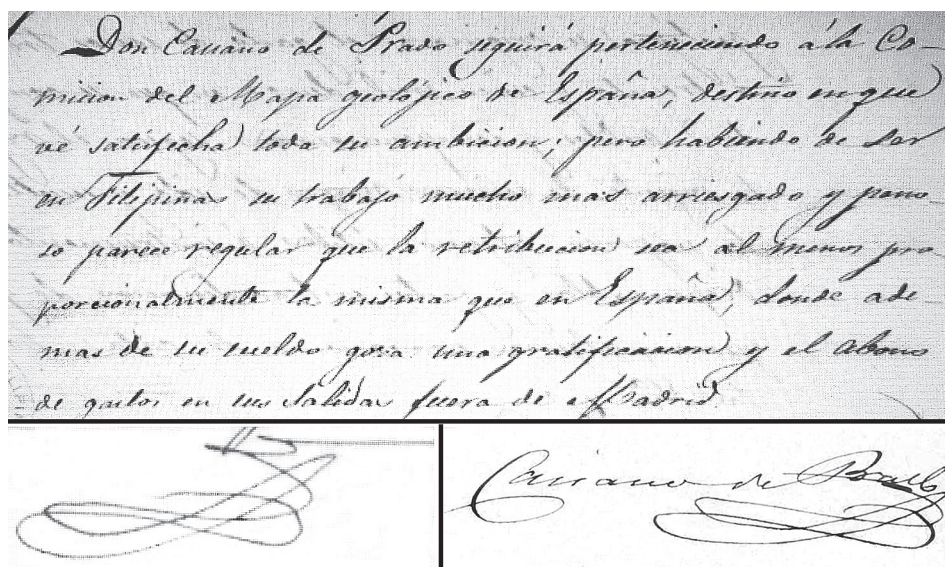 Don Casiano de Prado seguirá perteneciendo á la Co-
mision del Mapa geológico de España, destino en que
vé satisfecha toda su ambicion; pero habiendo de ser
en Filipinas su trabajo mucho mas arriesgado y peno-
so parece regular que la retribucion sea al menos pro-
porcionalmente la misma que en España, donde ade-
mas de su sueldo goza una gratificacion y el abono
de gastos en sus salidas fuera de Madrid.
Casiano de Prado